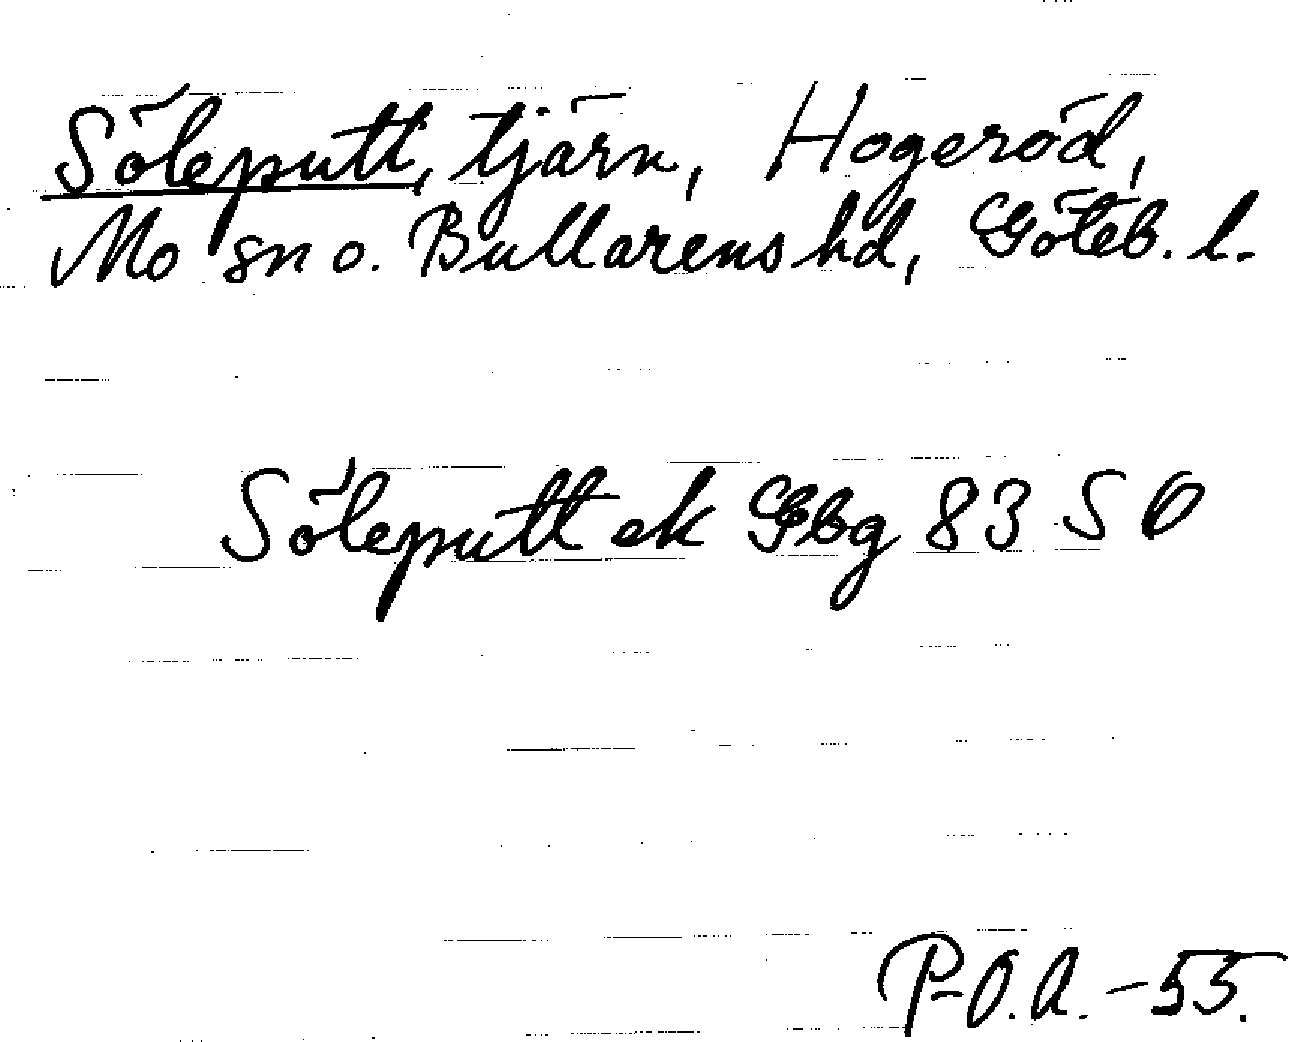 Söleputt, tjärn, Hogeröd,
Mo sn o. Bullarens hd, Göteb. l.
Söleputt ek Gbg 83 SO
P-O.A. -55.